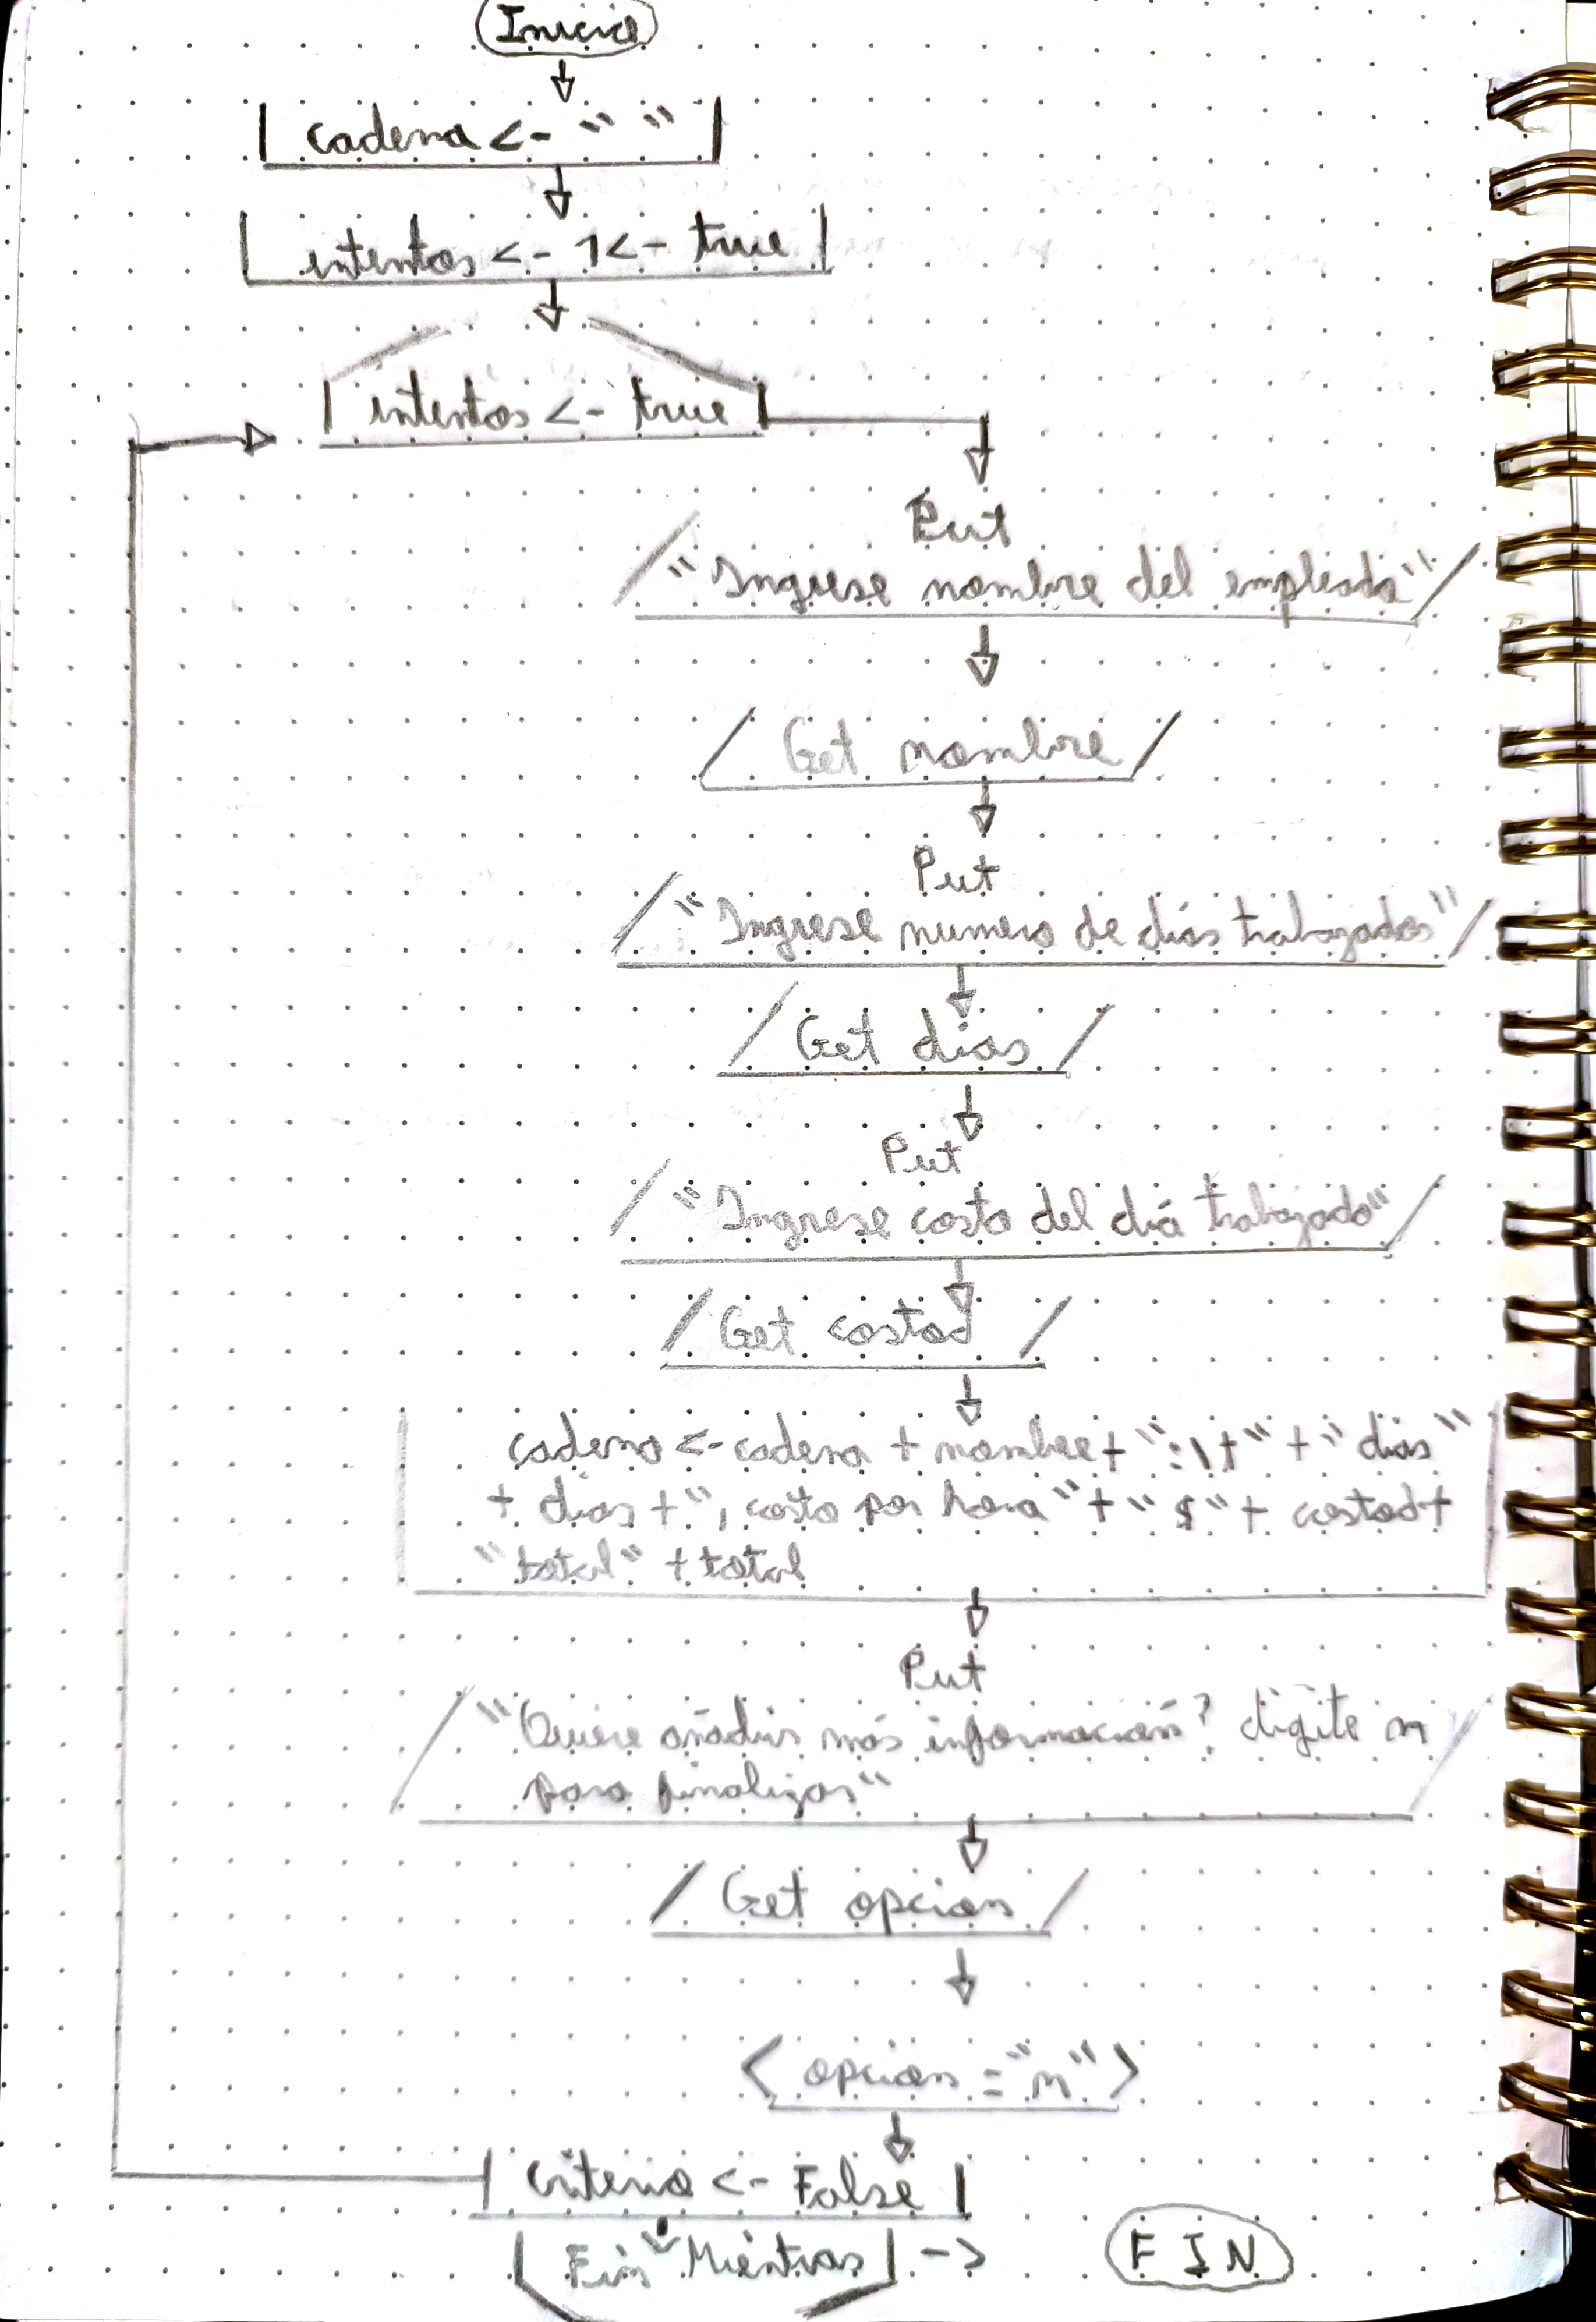 Inicio
cadena <- " "
intentos <- 1 <- true
intentos <- true
Put
"Ingrese nombre del empleado"
Get nombre
Put
"Ingrese numero de días trabajados"
Get dias
Put
"Ingrese costo del día trabajado"
Get costod
cadena <- cadena + nombre + ":\t" + "dias"
+ dias + ", costo por hora" + "$" + costod +
"total" + total
Put
"Quiere añadir más información? digite n
para finalizar"
Get opcion
opcion = "n"
criterio <- False
Fin Mientras ->
FIN